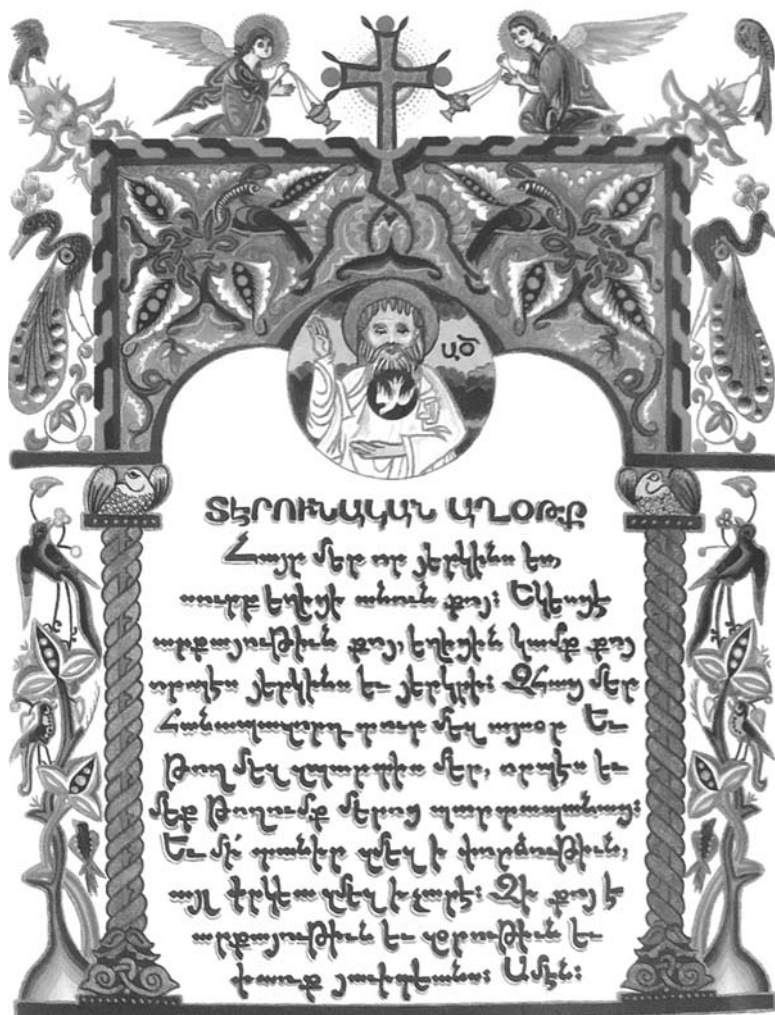 ԱԾ
ՏԷՐՈՒՆԱԿԱՆ ԱՂՕԹՔ
Հայր մեր որ յերկինս ես,
սուրբ եղիցի անուն քոյ։ Եկեսցէ
արքայութիւն քոյ, եղիցին կամք քոյ
որպէս յերկինս եւ յերկրի։ ԶՀաց մեր
Հանապազորդ տուր մեզ այսօր Եւ
թող մեզ զպարտիս մեր, որպէս եւ
մեք թողումք մերոց պարտապանաց։
Եւ մի՛ տանիր զմեզ ի փորձութիւն,
այլ փրկեա զմեզ ի չարէ։ Զի քոյ է
արքայութիւն եւ զօրութիւն եւ
փառք յաւիտեանս։ Ամէն։